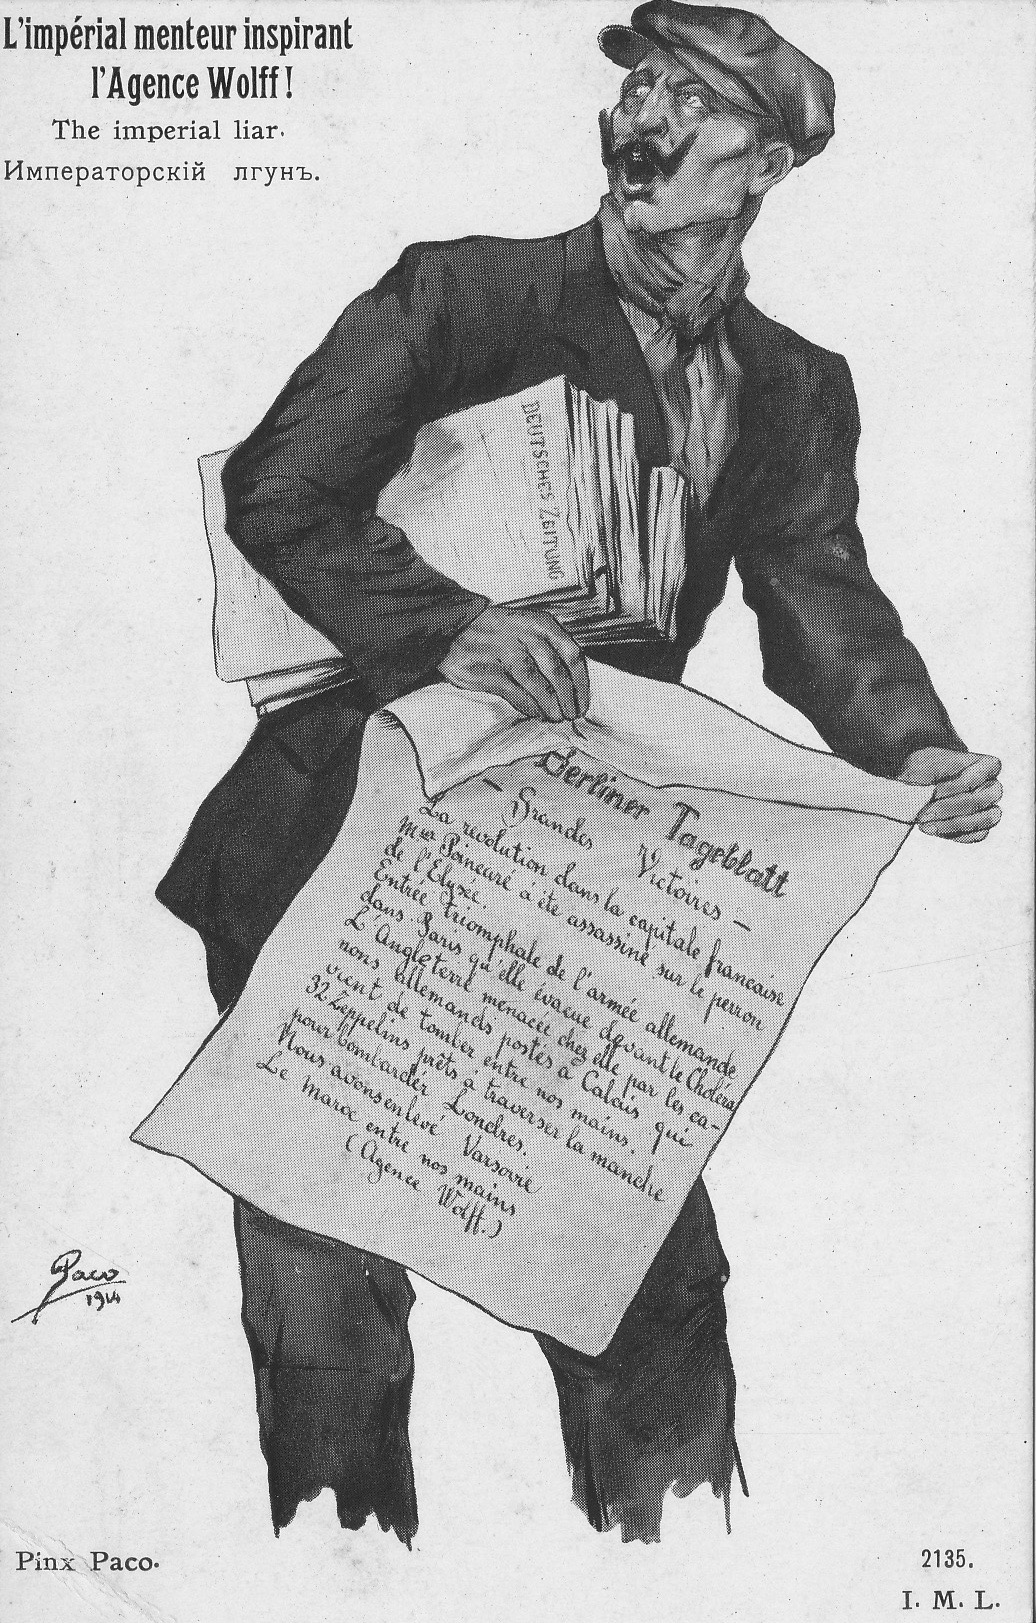 L'impérial menteur inspirant
l'Agence Wolff!
The imperial liar.
Императорскій лгунъ.
DEUTSCHES ZEITUNG
Berliner Tageblatt
— Grandes Victoires —
La revolution dans la capitale française
Mr Poincaré à éte assassiné sur le perron
de l'Elysée.
Entrée triomphale de l'armée allemande
dans Paris qu'elle évacue devant le Choléra
L'Angleterre menacée chez elle par les ca-
nons allemands postés à Calais qui
vient de tomber entre nos mains.
32 Zeppelins prêts à traverser la manche
pour bombarder Londres.
Nous avons enlevé Varsovie
Le Maroc entre nos mains
(Agence Wolff.)
Paco
1914
Pinx Paco.
2135.
I. M. L.